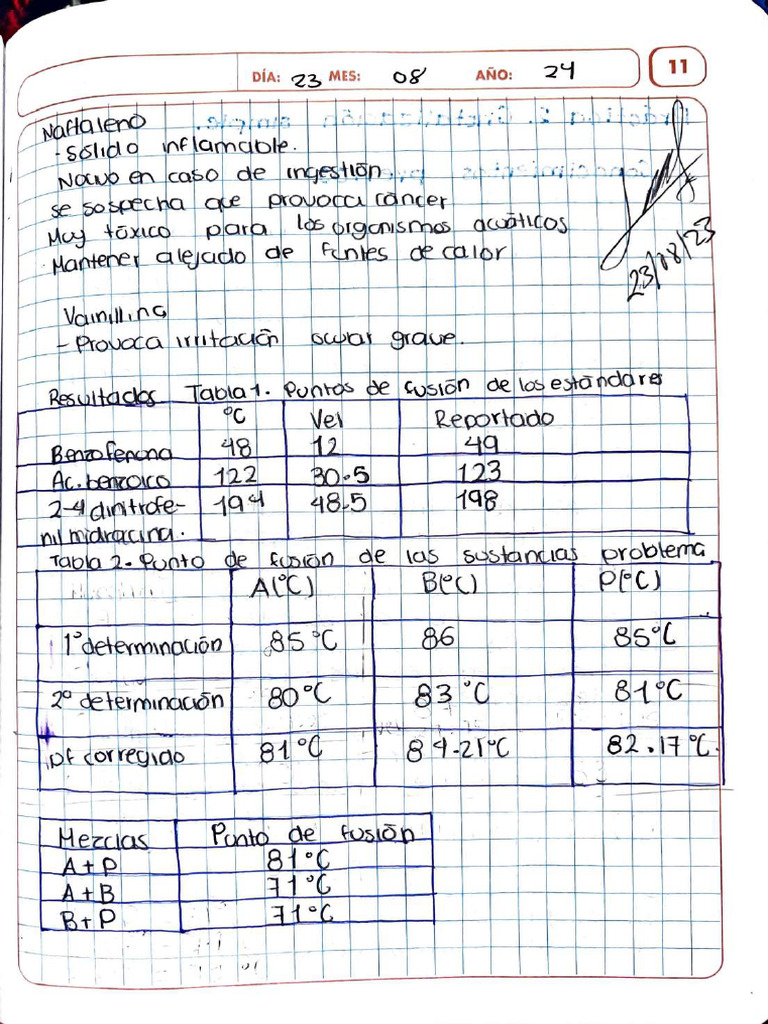 DÍA: 23 MES: 08 AÑO: 24 11
Naftaleno
- Sólido inflamable.
Nocivo en caso de ingestión
se sospecha que provoca cáncer
Muy tóxico para los organismos acuáticos
Mantener alejado de fentes de calor
23/08/23
Vainillina
- Provoca irritación ocular grave.
Resultados Tabla 1. Puntos de fusión de los estándares
°C Vel Reportado
Benzofenona 48 12 49
Ac. benzoico 122 30.5 123
2-4 dinitrofe- 194 48.5 198
nilmidracina.
Tabla 2. Punto de fusión de las sustancias problema
A(°C) B(°C) P(°C)
1° determinación 85°C 86 85°C
2° determinación 80°C 83°C 81°C
pf corregido 81°C 84.21°C 82.17°C.
Mezclas Punto de fusión
A+P 81°C
A+B 71°C
B+P 71°C